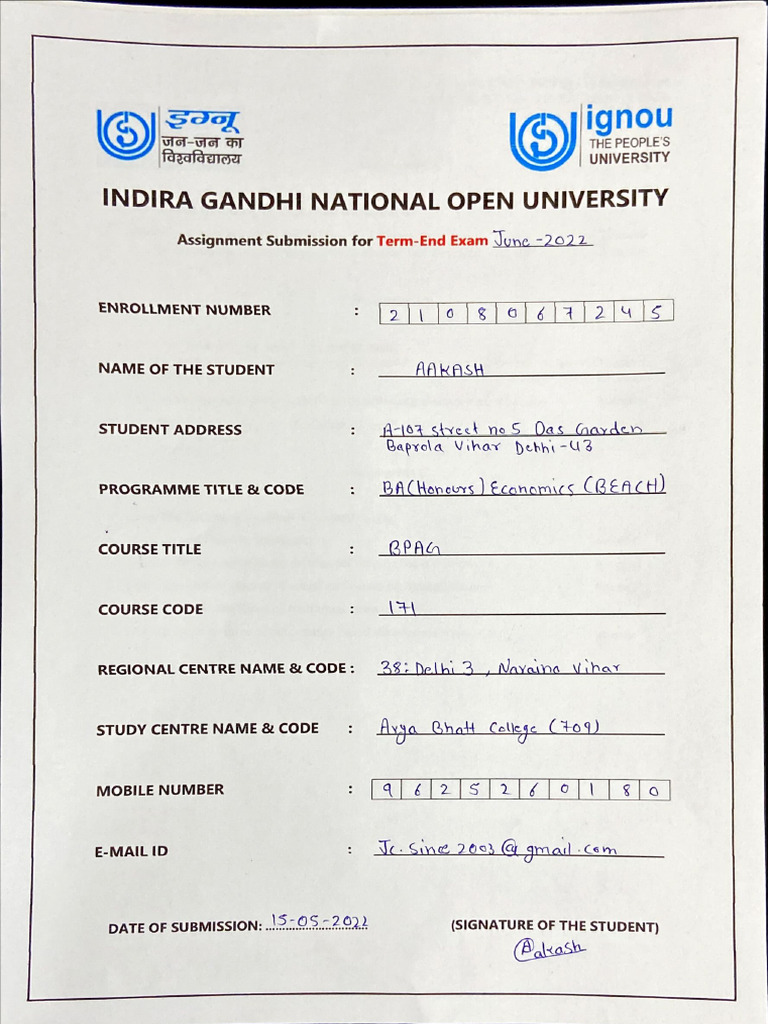 इग्नू
जन-जन का
विश्वविद्यालय
ignou
THE PEOPLE'S
UNIVERSITY
INDIRA GANDHI NATIONAL OPEN UNIVERSITY
Assignment Submission for Term-End Exam June-2022
ENROLLMENT NUMBER : 2108067245
NAME OF THE STUDENT : AAKASH
STUDENT ADDRESS : A-107 street no 5 Das Garden
Baprola Vihar Delhi-43
PROGRAMME TITLE & CODE : BA(Honours) Economics (BEACH)
COURSE TITLE : BPAG
COURSE CODE : 171
REGIONAL CENTRE NAME & CODE : 38: Delhi 3, Naraina Vihar
STUDY CENTRE NAME & CODE : Arya Bhatt College (709)
MOBILE NUMBER : 9625260180
E-MAIL ID : Jc.Since2003@gmail.com
DATE OF SUBMISSION: 15-05-2022 (SIGNATURE OF THE STUDENT)
Aakash